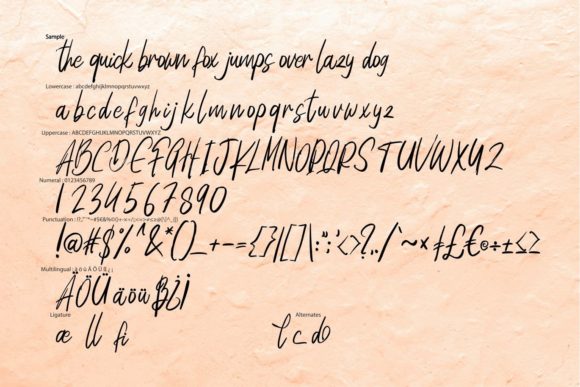 Sample
the quick brown fox jumps over lazy dog
Lowercase : abcdefghijklmnopqrstuvwxyz
abcdefghijklmnopqrstuvwxyz
Uppercase : ABCDEFGHIJKLMNOPQRSTUVWXYZ
ABCDEFGHIJKLMNOPQRSTUVWXYZ
Numeral : 0123456789
1234567890
Punctuation :
!@#$%^&*()_+-={}|[]\:";'<>?,./`~×
£€©÷±≤≥
Multilingual :
ÄÖÜäöüß¿¡
Ligature
æ ll fi
Alternates
l c do